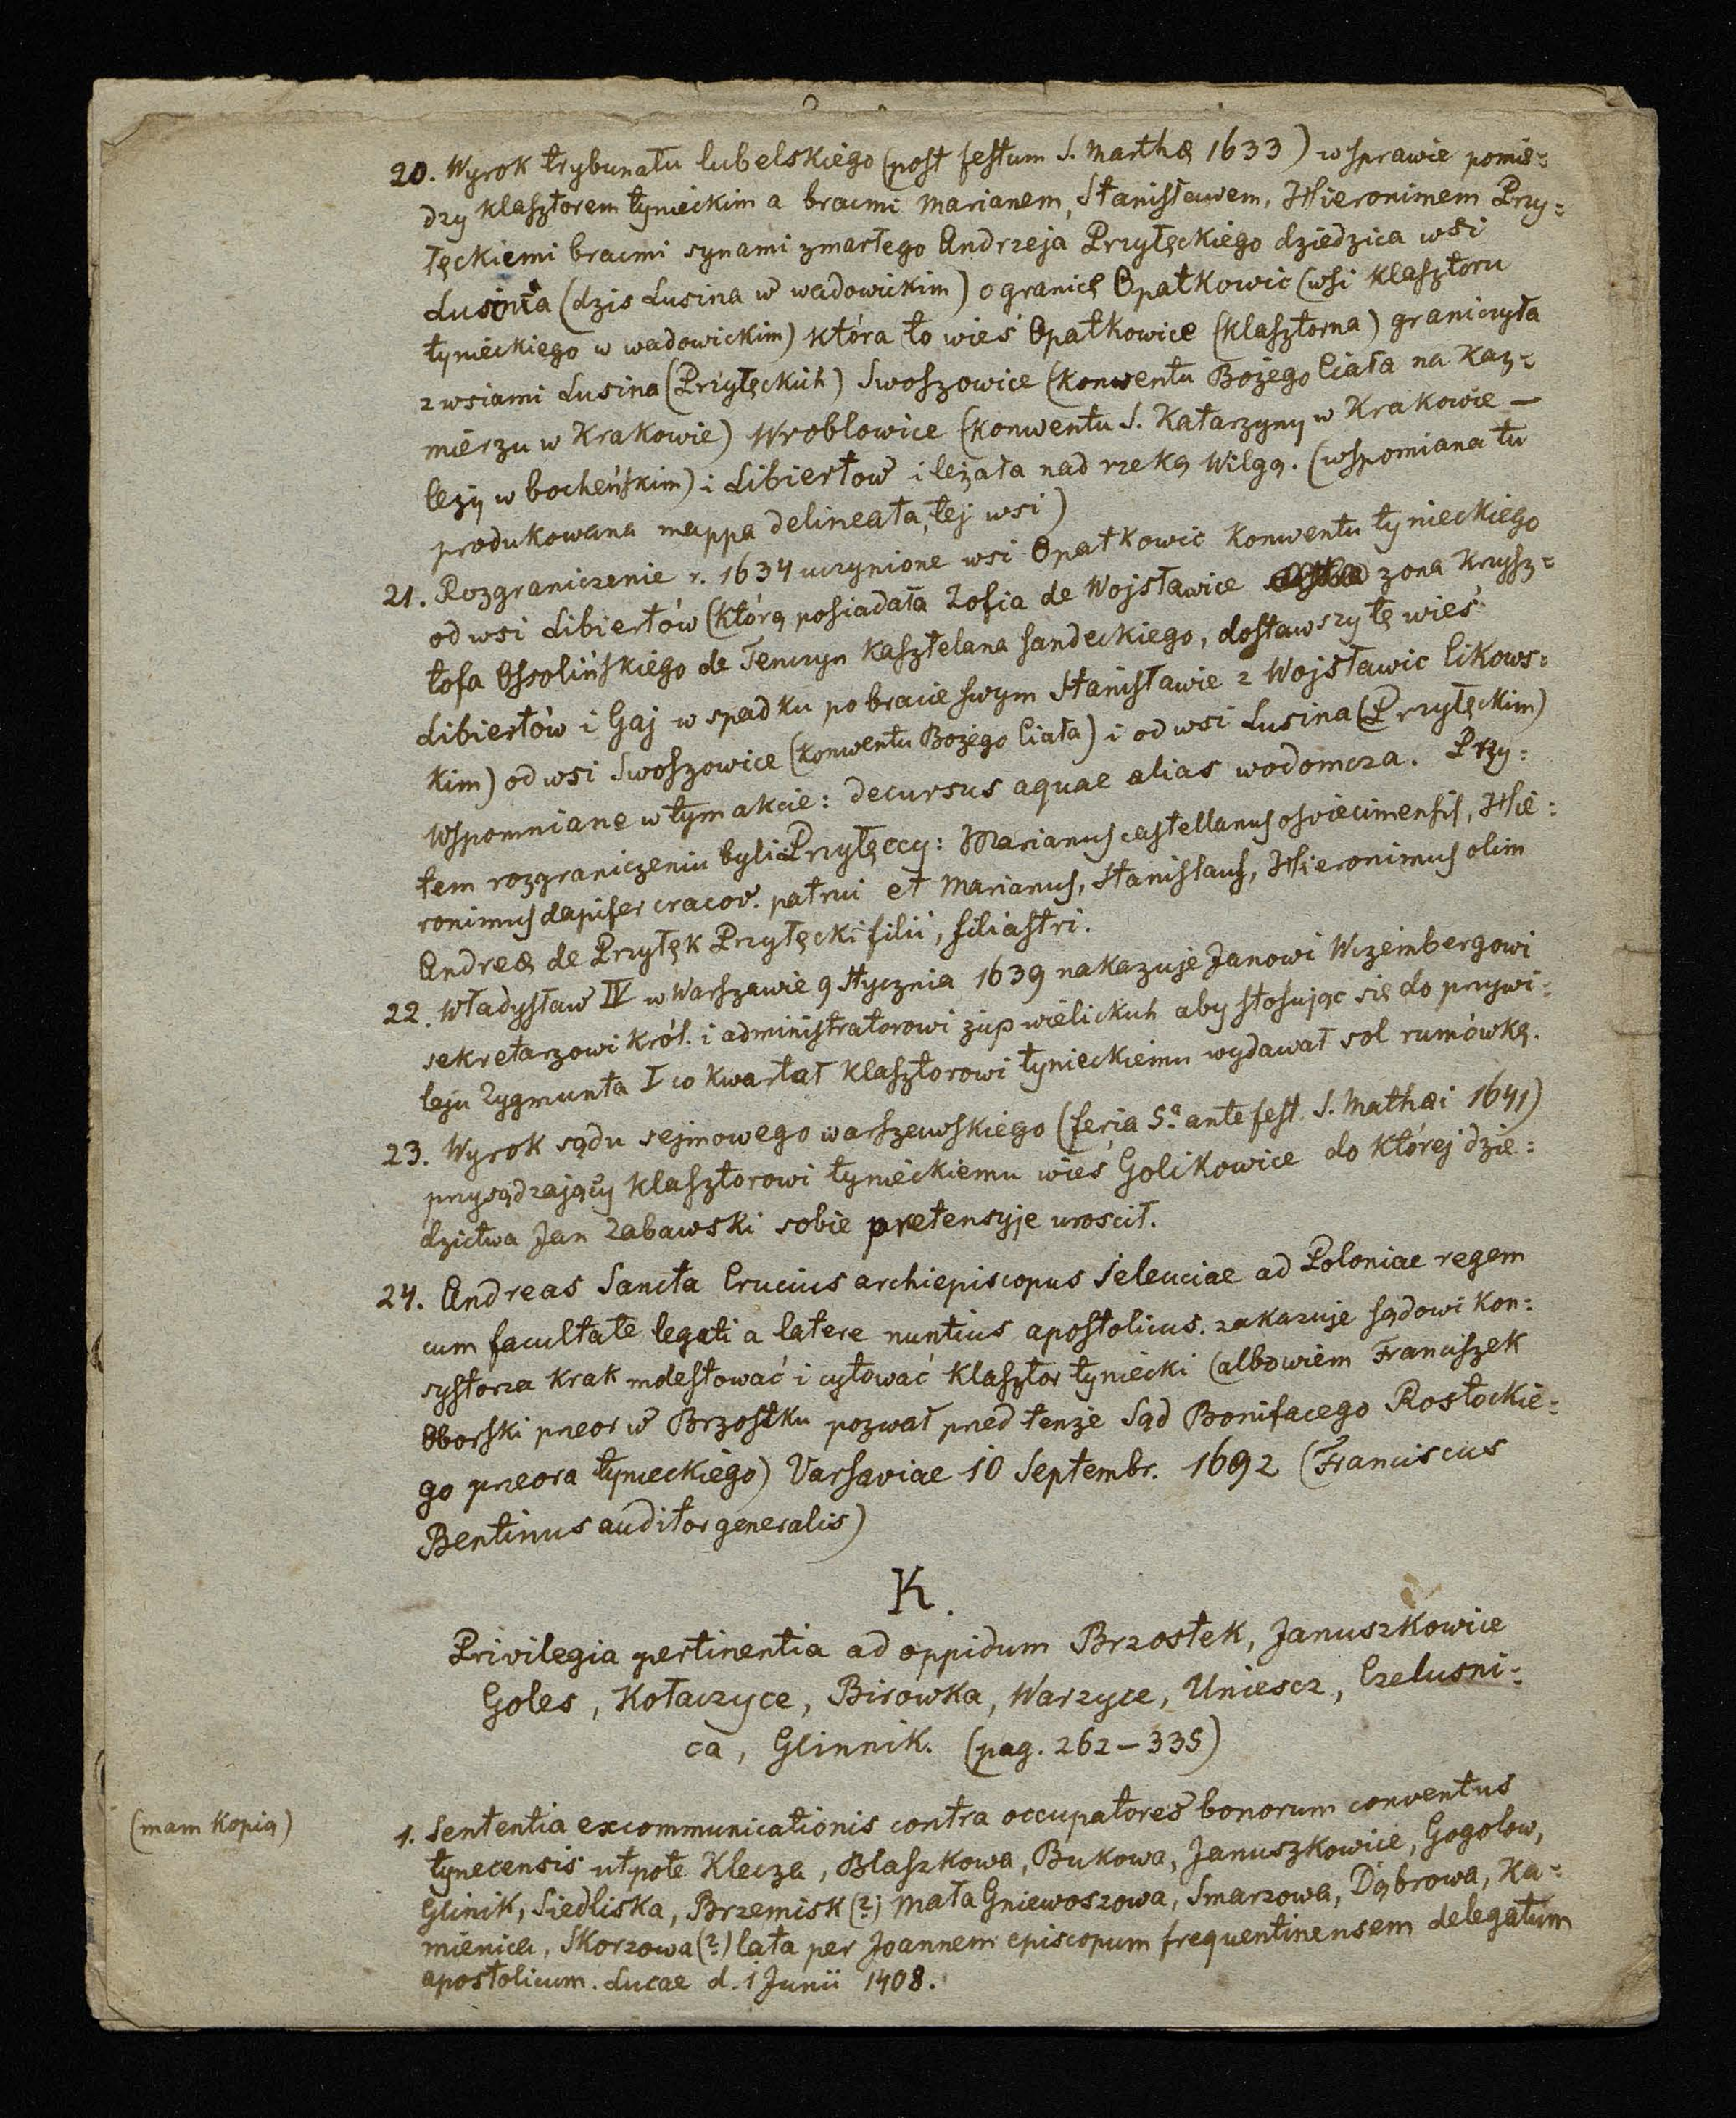 20. Wyrok trybunatu lubelskiego (post festum S. Marthæ 1633) w sprawie pomię=
dzy klasztorem tynieckim a bracmi Marianem, Stanisławem, Hieronimem Przy=
łęckiemi bracmi synami zmarłego Andrzeja Przyłęckiego dziedzica wsi
Lusina (dzis Lusina w wadowickim) o granicę Opatkowic (wsi klasztoru
tynieckiego w wadowickim) która to wieś Opatkowice (klasztorna) graniczyła
z wsiami Lusina (Przyłęckich) Swoszowice (konwentu Bożego Ciała na Kaz=
mierzu w Krakowie) Wroblowice (konwentu S. Katarzyny w Krakowie —
leży w bocheńskim) i Libiertow i leżała nad rzeką Wilgą. (wspomiana tu
produkowana mappa delineata, tej wsi)
21. Rozgraniczenie r. 1634 uczynione wsi Opatkowic konwentu tynieckiego
od wsi Libiertów (którą posiadała Zofia de Wojsławice żona Krysz=
tofa Ossolińskiego de Tenczyn kasztelana sandeckiego, dostawszy tę wieś
Libiertów i Gaj w spadku po bracie swym Stanisławie z Wojsławic Cikows=
kim) od wsi Swoszowice (konwentu Bożego Ciała) i od wsi Lusina (Przyłęckim)
Wspomniane w tym akcie: decursus aquae alias wodomcza. Przy=
tem rozgraniczeniu byli Przyłęccy: Marianus castellanus osviecimensis, Hie=
ronimus dapifer cracov. patrui et Marianus, Stanislaus, Hieronimus olim
Andreæ de Przyłęk Przyłęcki filii, filiastri.
22. Władysław IV w Warszawie 9 Stycznia 1639 nakazuje Janowi Wczembergowi
sekretarzowi król. i administratorowi żup wielickich aby stosując się do przywi=
leju Zygmunta I co kwartał klasztorowi tynieckiemu wydawał sol rumówką.
23. Wyrok sądu sejmowego warszawskiego (feria 5ª ante fest. S. Mathæi 1641)
przysądzający klasztorowi tynieckiemu wieś Golikowice do której dzie=
dzictwa Jan Zabawski sobie pretensyje urościł.
24. Andreas Sancta Crucius archiepiscopus Seleuciae ad Poloniae regem
cum facultate legati a latere nuntius apostolicus. zakazuje sądowi kon=
systorza krak molestować i cytować klasztor tyniecki (albowiem Franciszek
Oborski preor w Brzostku pozwał przed tenże Sąd Bonifacego Rostockie=
go preora tynieckiego) Varsaviae 10 Septembr. 1692 (Franciscus
Bentinus auditor generalis)
K.
Privilegia pertinentia ad oppidum Brzostek, Januszkowice
Goles, Kołaczyce, Birowka, Warzyce, Uniescz, Czelusni=
ca, Glinnik. (pag. 262–335)
(mam kopią)
1. Sententia excommunicationis contra occupatores bonorum conventus
tynecensis utpote Klecza, Blaszkowa, Bukowa, Januszkowice, Gogolow,
Glinik, Siedliska, Brzemisk (?) Mała Gniewoszowa, Smarzowa, Dąbrowa, Ka=
mienica, Skorzowa (?) lata per Joannem episcopum frequentinensem delegatum
apostolicum. Lucae d. 1 Junii 1408.